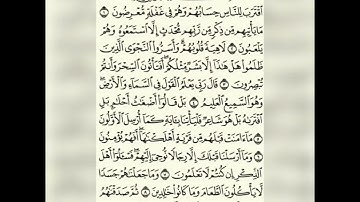 ٱقْتَرَبَ لِلنَّاسِ حِسَابُهُمْ وَهُمْ فِى غَفْلَةٍ مُّعْرِضُونَ ١
مَا يَأْتِيهِم مِّن ذِكْرٍ مِّن رَّبِّهِم مُّحْدَثٍ إِلَّا ٱسْتَمَعُوهُ وَهُمْ
يَلْعَبُونَ ٢ لَاهِيَةً قُلُوبُهُمْ وَأَسَرُّوا۟ ٱلنَّجْوَى ٱلَّذِينَ
ظَلَمُوا۟ هَلْ هَٰذَآ إِلَّا بَشَرٌ مِّثْلُكُمْ أَفَتَأْتُونَ ٱلسِّحْرَ وَأَنتُمْ
تُبْصِرُونَ ٣ قَالَ رَبِّى يَعْلَمُ ٱلْقَوْلَ فِى ٱلسَّمَآءِ وَٱلْأَرْضِ
وَهُوَ ٱلسَّمِيعُ ٱلْعَلِيمُ ٤ بَلْ قَالُوٓا۟ أَضْغَٰثُ أَحْلَٰمٍۭ بَلِ
ٱفْتَرَىٰهُ بَلْ هُوَ شَاعِرٌ فَلْيَأْتِنَا بِـَٔايَةٍ كَمَآ أُرْسِلَ ٱلْأَوَّلُونَ
٥ مَآ ءَامَنَتْ قَبْلَهُم مِّن قَرْيَةٍ أَهْلَكْنَٰهَآ أَفَهُمْ يُؤْمِنُونَ
٦ وَمَآ أَرْسَلْنَا قَبْلَكَ إِلَّا رِجَالًا نُّوحِىٓ إِلَيْهِمْ فَسْـَٔلُوٓا۟ أَهْلَ
ٱلذِّكْرِ إِن كُنتُمْ لَا تَعْلَمُونَ ٧ وَمَا جَعَلْنَٰهُمْ جَسَدًا
لَّا يَأْكُلُونَ ٱلطَّعَامَ وَمَا كَانُوا۟ خَٰلِدِينَ ٨ ثُمَّ صَدَقْنَٰهُمُ